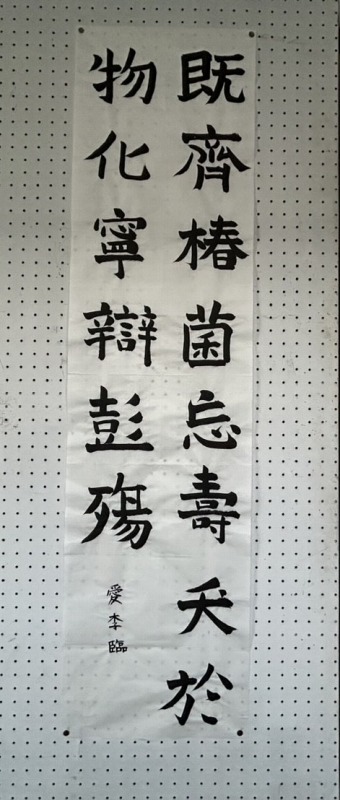 既齊椿菌忘壽夭於
物化寧辯彭殤
愛李臨